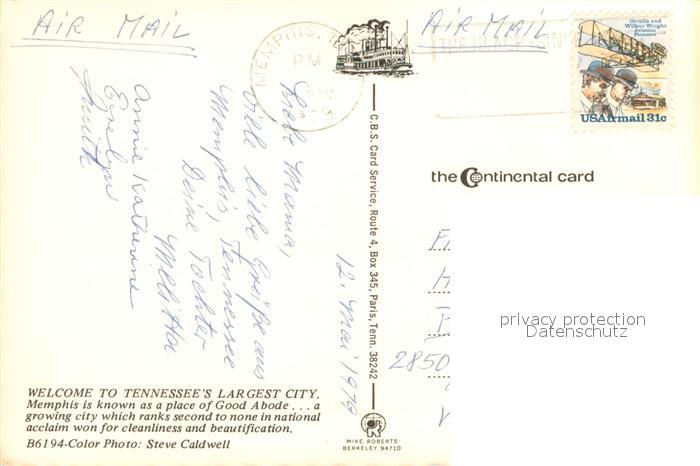 AIR MAIL
AIR MAIL
MEMPHIS, T
PM
Orville and
Wilbur Wright
Aviation
Pioneers
USAirmail 31c
the Continental card
C.B.S. Card Service, Route 4, Box 345, Paris, Tenn. 38242
12. Mai 1979
Liebe Mama,
viele liebe Grüße aus
Memphis, Tennessee
Deine Tochter
Melitta
Annie Katherine
Evelyn
Smith
2850
privacy protection
Datenschutz
WELCOME TO TENNESSEE'S LARGEST CITY.
Memphis is known as a place of Good Abode . . . a
growing city which ranks second to none in national
acclaim won for cleanliness and beautification.
B6194-Color Photo: Steve Caldwell
MIKE ROBERTS
BERKELEY 94710